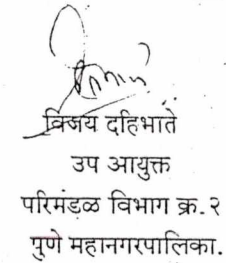 विजय दहिभाते
उप आयुक्त
परिमंडळ विभाग क्र.२
पुणे महानगरपालिका.